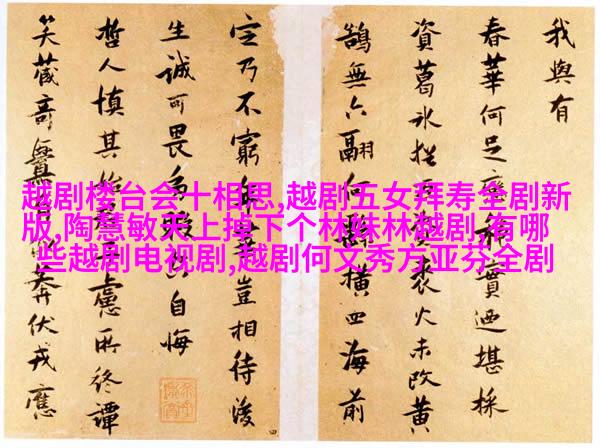 越剧楼台会十相思,越剧五女拜寿全剧新
版,陶慧敏天上掉下个林妹林越剧,有哪
些越剧电视剧,越剧何文秀方亚芬全剧
我與有
春華何足實迺堪採
資葛裘火未改黃
鵠無六翮何橫四海前
定乃不窮華豈相待後
生誠可畏為自悔
哲人慎其始慮所終譚
笑藏奔伏戎應
四